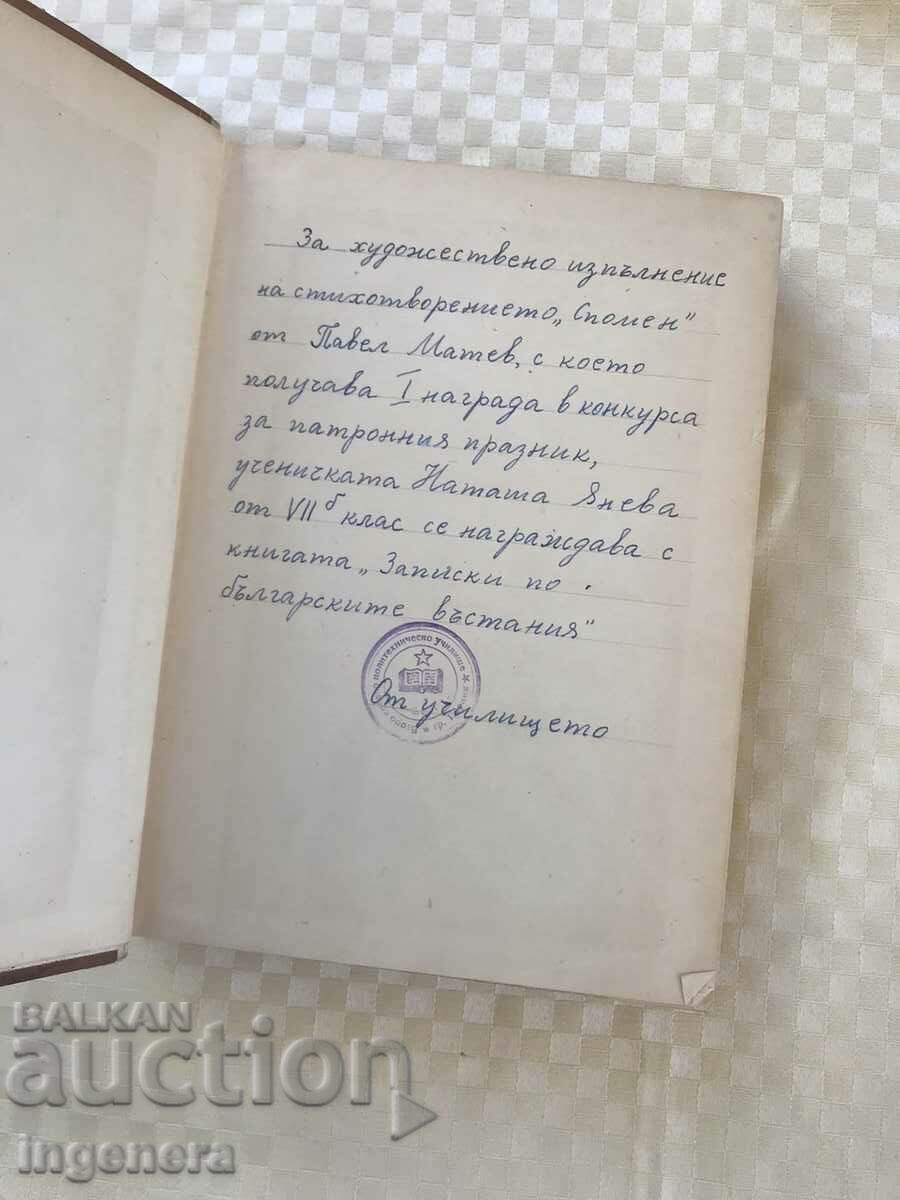 За художествено изпълнение
на стихотворението „Спомен"
от Павел Матев, с което
получава I награда в конкурса
за патронния празник,
ученичката Наташа Янева
от VII б клас се награждава с
книгата „Записки по
българските въстания"
политехническо училище
От училището
BALKAN
auction
ingenera